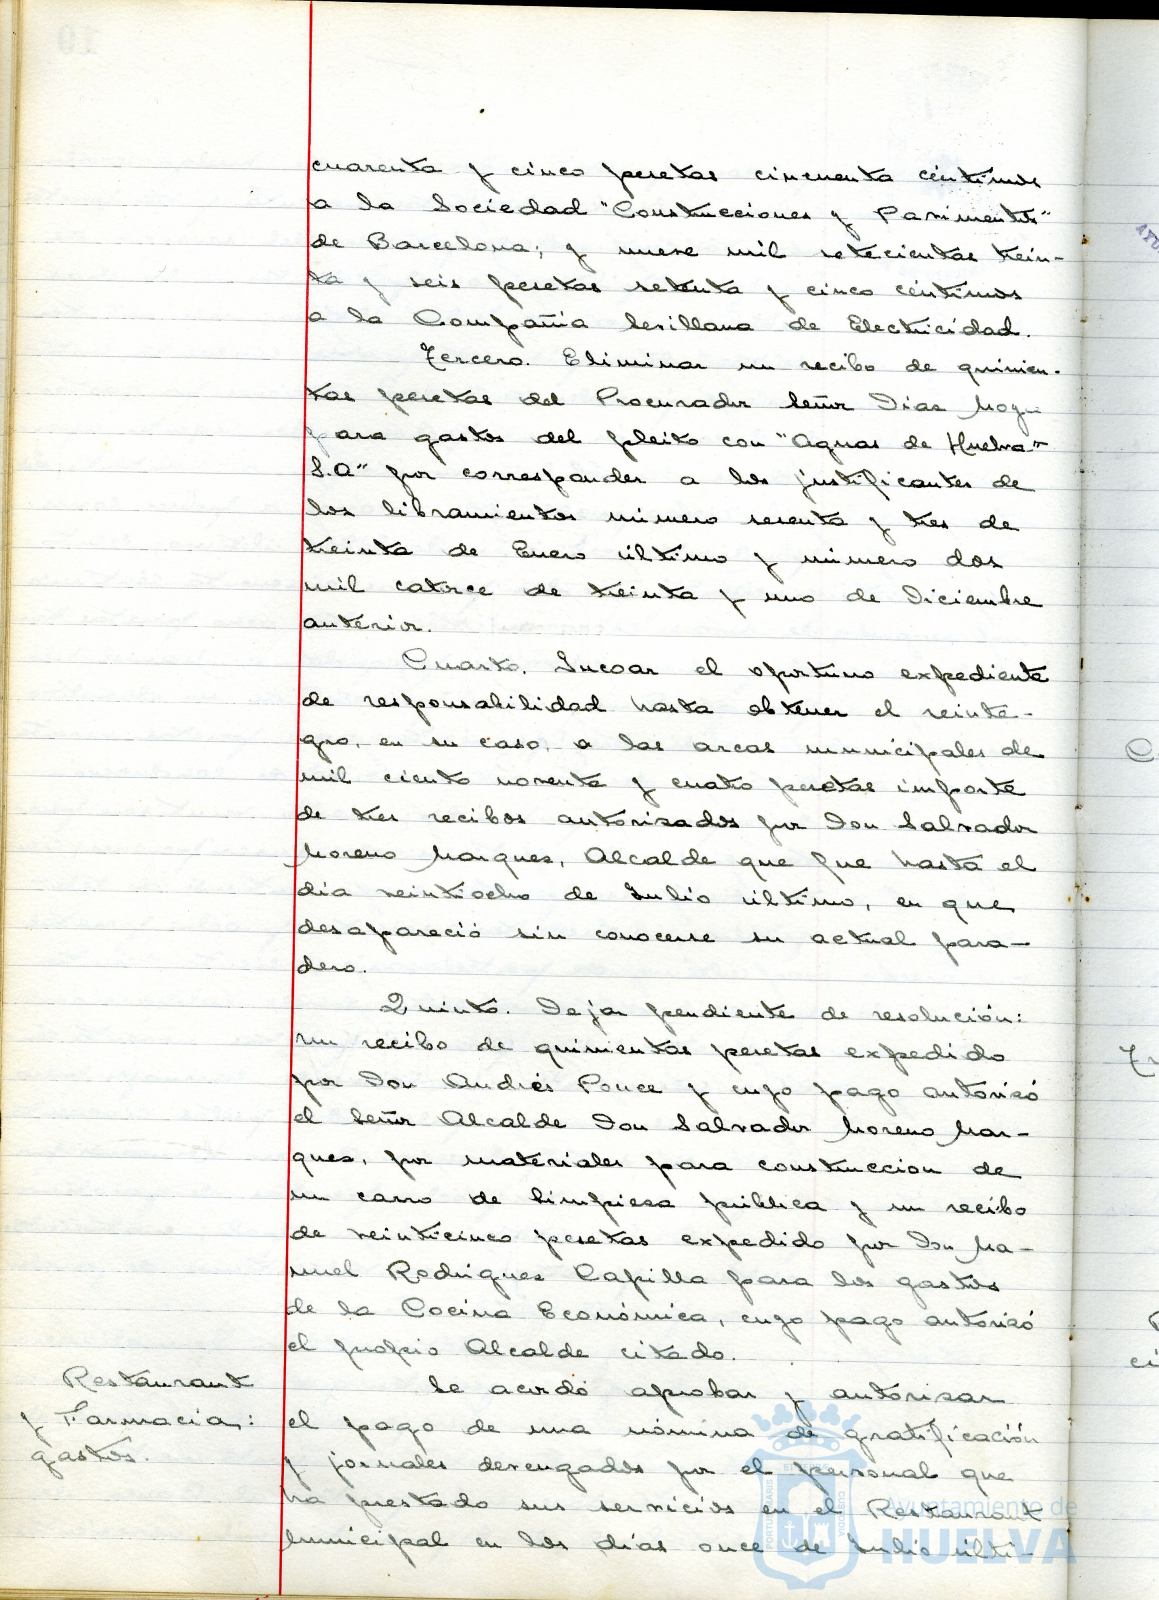 cuarenta y cinco pesetas cincuenta céntimos
a la Sociedad "Construcciones y Pavimentos"
de Barcelona; y nueve mil setecientas trein-
ta y seis pesetas setenta y cinco céntimos
a la Compañia Sevillana de Electricidad.
Tercero. Eliminar un recibo de quinien-
tas pesetas del Procurador Señor Dias
para gastos del pleito con "Aguas de Huelva
S.A" por corresponder a los justificantes de
los libramientos número sesenta y tres de
treinta de Enero último y número dos
mil catorce de treinta y uno de Diciembre
anterior.
Cuarto. Incoar el oportuno expediente
de responsabilidad hasta obtener el reinte-
gro, en su caso, a las arcas municipales de
mil ciento noventa y cuatro pesetas importe
de tres recibos autorizados por Don Salvador
Moreno Marquez, Alcalde que fue hasta el
día veintiocho de Julio último, en que
desapareció sin conocerse su actual para-
dero.
Quinto. Dejar pendiente de resolución:
un recibo de quinientas pesetas expedido
por Don Andrés Ponce y cuyo pago autorizó
el Señor Alcalde Don Salvador Moreno Mar-
quez, por materiales para construccion de
un carro de limpieza pública y un recibo
de veinticinco pesetas expedido por Don Ma-
nuel Rodriguez Capilla para los gastos
de la Cocina Económica, cuyo pago autorizó
el propio Alcalde citado.
Restaurant
y Farmacia,:
gastos.
Se acordó aprobar y autorizar
el pago de una nómina de gratificación
y jornales devengados por el personal que
ha prestado sus servicios en el Restaurant
Municipal en los días once de Julio últi-
Ayuntamiento de
HUELVA